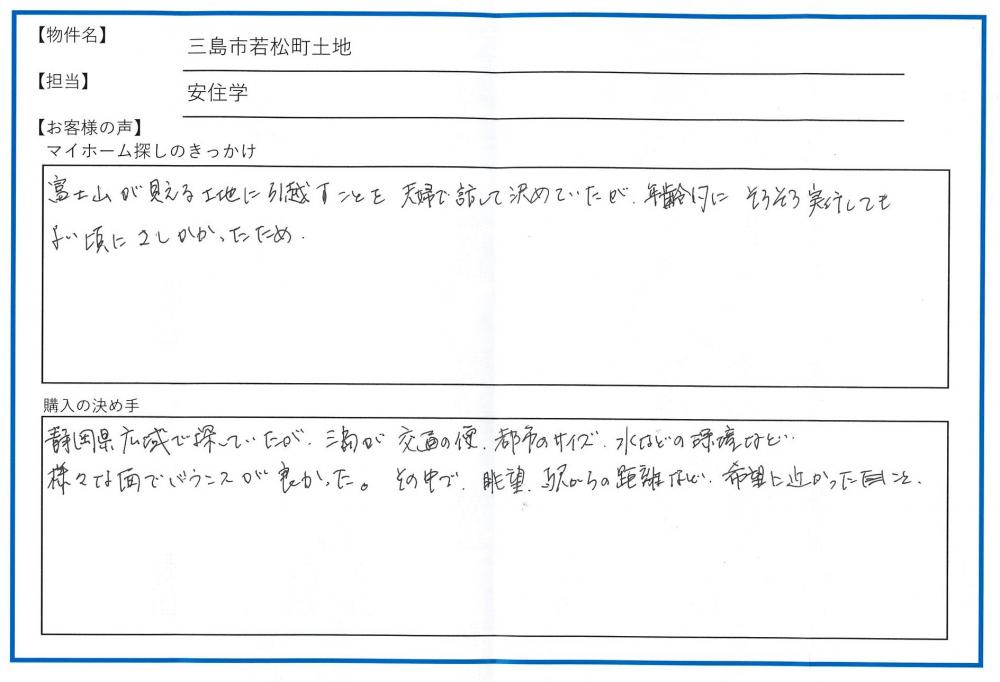 【物件名】
三島市若松町土地
【担当】
安住学
【お客様の声】
マイホーム探しのきっかけ
富士山が見える土地に引越すことを夫婦で話して決めていたが、年齢的にそろそろ実行しても
よい頃にさしかかったため.
購入の決め手
静岡県広域で探していたが、三島が交通の便、都市のサイズ、水などの環境など、
様々な面でバランスが良かった。その中で、眺望、駅からの距離など、希望に近かったこと.